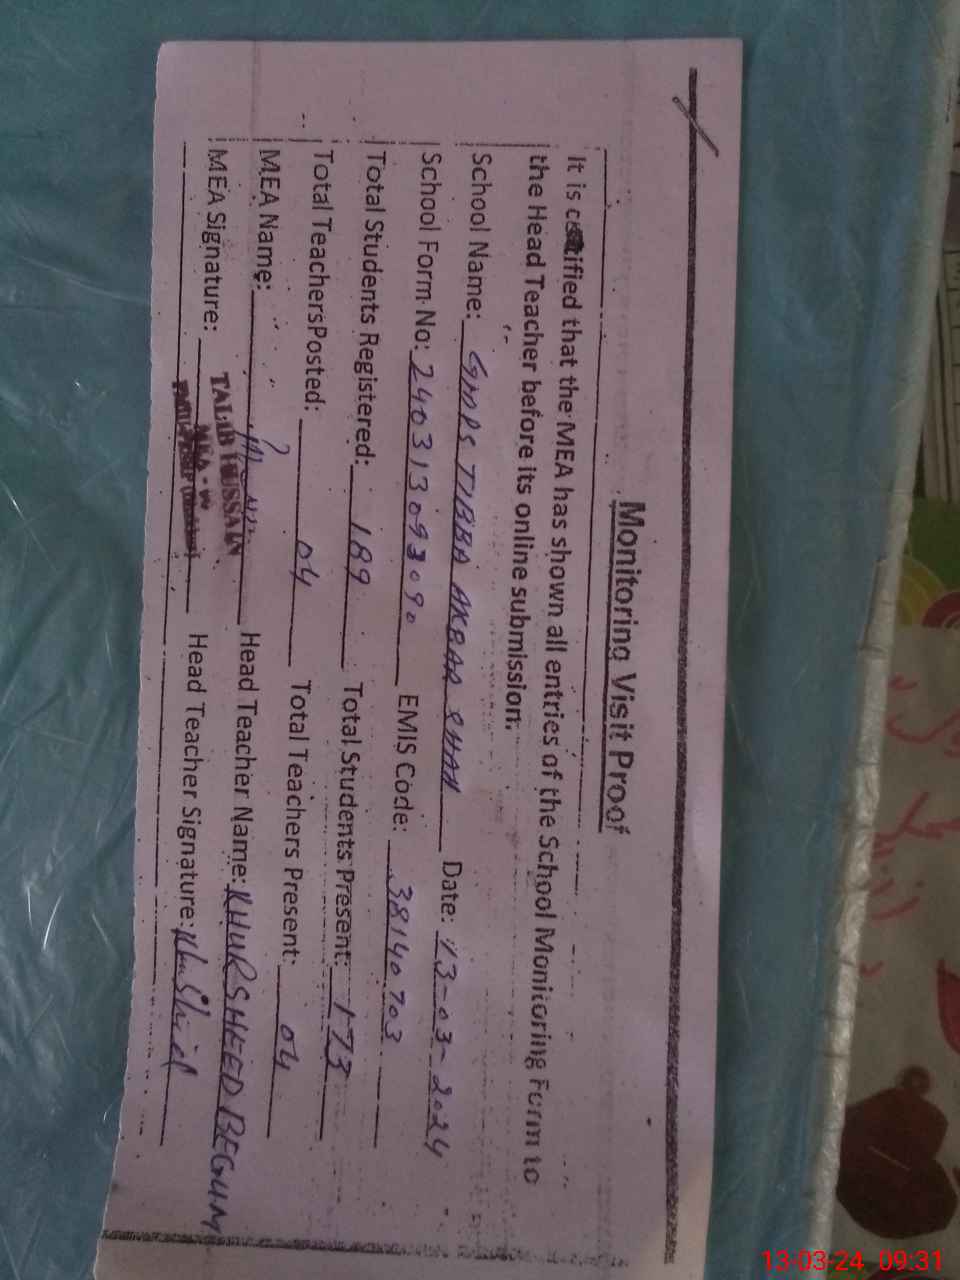 Monitoring Visit Proof
It is certified that the MEA has shown all entries of the School Monitoring Form to
the Head Teacher before its online submission.
School Name: GMPS TIBBA AKBAR KHAN Date: 13-03-2024
School Form No: 240313093090 EMIS Code: 38140703
Total Students Registered: 189 Total Students Present: 173
Total TeachersPosted: 04 Total Teachers Present: 04
MEA Name: Head Teacher Name: KHURSHEED BEGUM
MEA Signature: Head Teacher Signature: Khurshid
TALIB HUSSAIN
MEA -
13-03-24 09:31